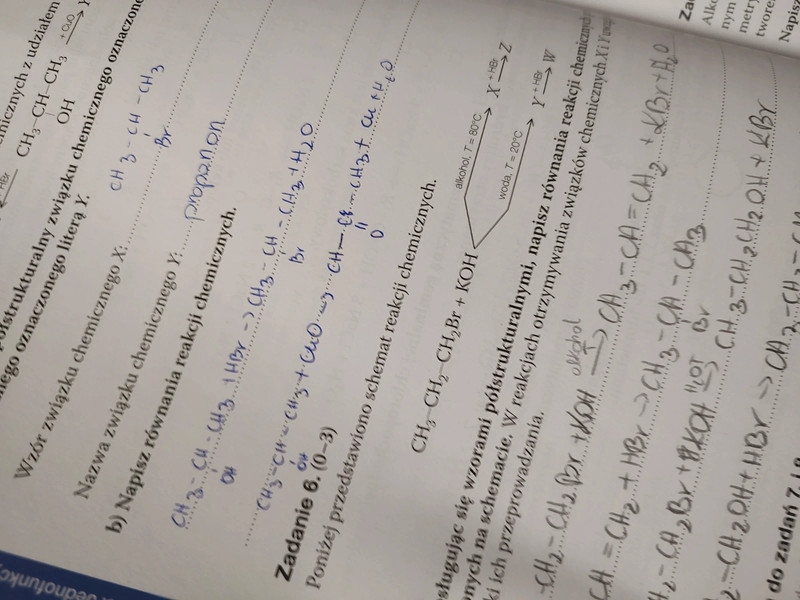 micznych z udziałem
CH₃–CH–CH₃ + CuO → Y
OH
HBr
półstrukturalny związku chemicznego oznaczone
nego oznaczonego literą Y.
Wzór związku chemicznego X: CH3 – CH – CH3
Br
Nazwa związku chemicznego Y: propanon
b) Napisz równania reakcji chemicznych.
CH3 – CH – CH3 + HBr → CH3 – CH – CH3 + H2O
OH Br
CH3 – CH – CH3 + CuO → CH – C – CH3 + Cu + H2O
OH O
Zadanie 6. (0–3)
Poniżej przedstawiono schemat reakcji chemicznych.
alkohol, T = 80°C X + HBr → Z
CH₃–CH₂–CH₂Br + KOH
woda, T = 20°C Y + HBr → W
sługując się wzorami półstrukturalnymi, napisz równania reakcji chemicznych
onych na schemacie. W reakcjach otrzymywania związków chemicznych X i Y
ki ich przeprowadzania.
– CH2 – CH2Br + KOH alkohol T → CH3 – CH = CH2 + KBr + H2O
CH = CH2 + HBr → CH3 – CH – CH3
Br
H2 – CH2Br + KOH H2O T → CH3 – CH2 CH2OH + KBr
2 – CH2OH + HBr → CH3 – CH2 – CH
do zadań 7. i 8
Zada
Alko
nym
metry
tworen
Napisz
Jednofunkcy